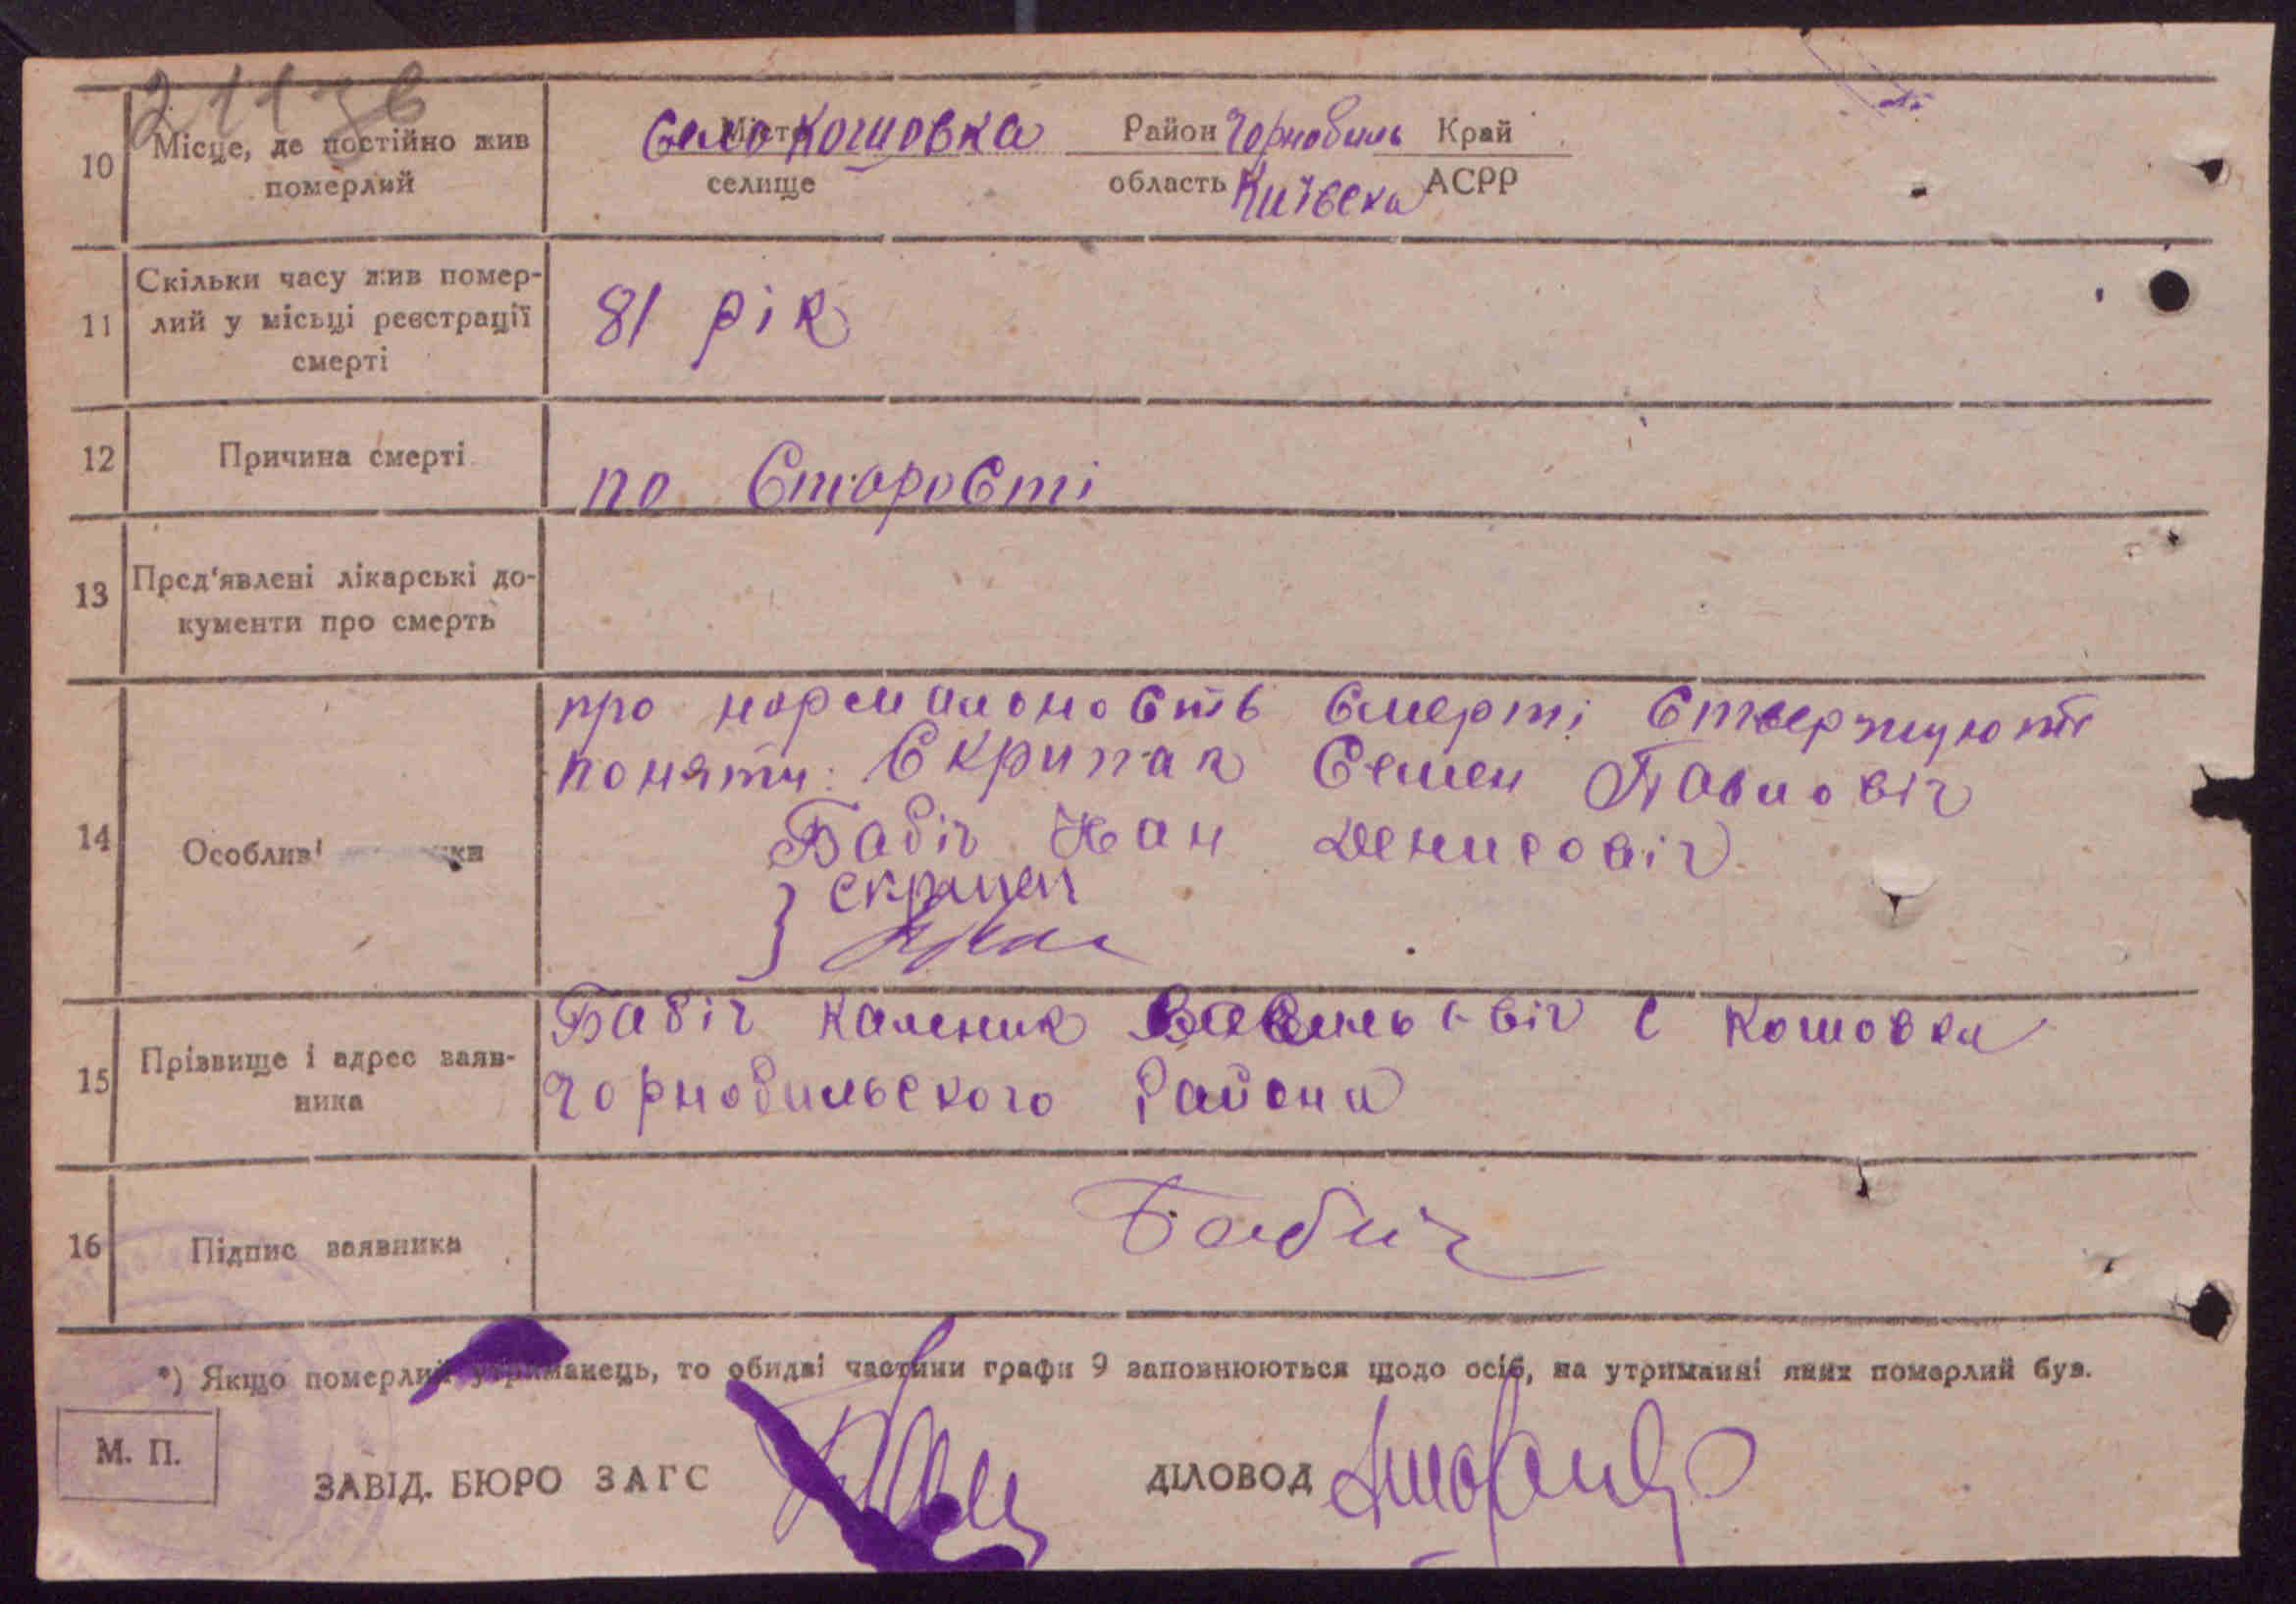 10
Місце, де постійно жив
померлий
Село Кошовка
Місто
селище
Район Чорнобиль Край
область Київска АСРР
11
Скільки часу жив помер-
лий у місьці реєстрації
смерті
81 рік
12
Причина смерті
по Старості
13
Пред'явлені лікарські до-
кументи про смерть
14
Особливі
про нормальность смерті Ствержують
поняти: Скрипак Семен Павловіч
Бабіч Іван Денисовіч
15
Прізвище і адрес заяв-
ника
Бабіч Каленик с Кошовка
Чорнобильского Района
16
Підпис заявника
Бабич
*) Якщо померлий утриманець, то обидві частини графи 9 заповнюються щодо осіб, на утриманні яких померлий був.
М. П.
ЗАВІД. БЮРО ЗАГС
ДІЛОВОД